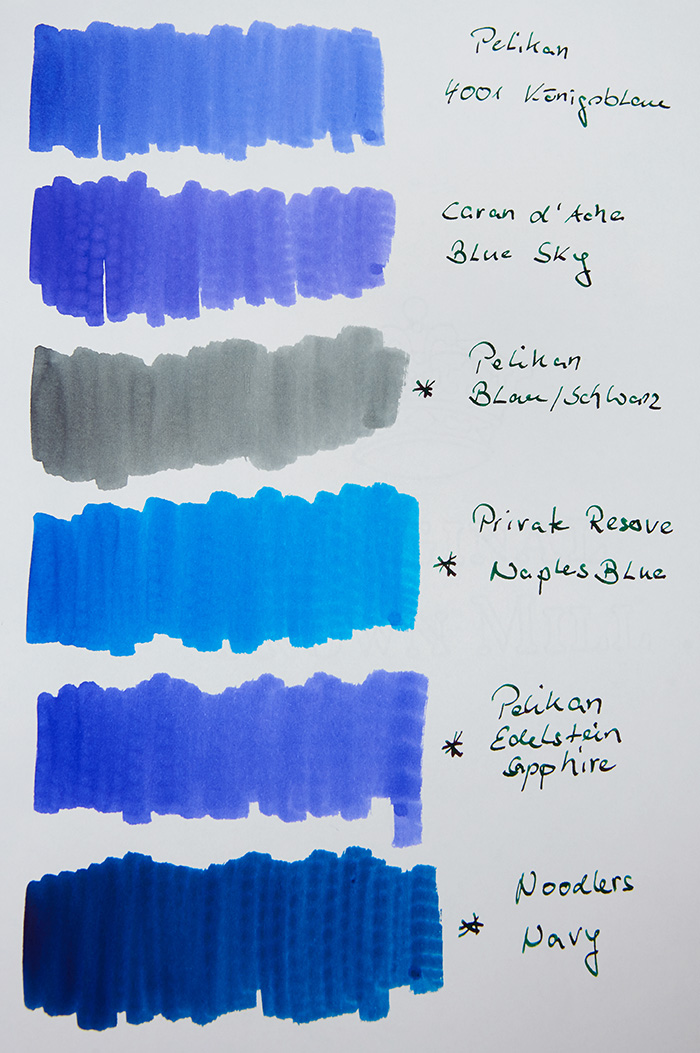 Pelikan
4001 Königsblau
Caran d'Ache
Blue Sky
* Pelikan
Blau/Schwarz
Private Resove
* Naples Blue
Pelikan
* Edelstein
Sapphire
Noodlers
* Navy